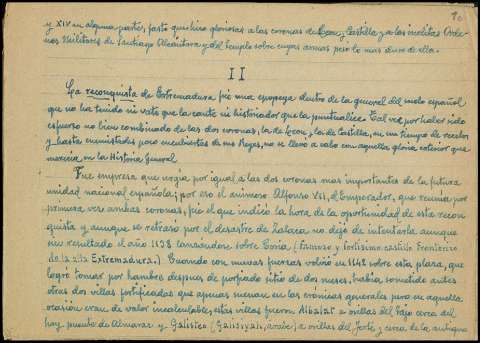 10
y XIV en alguna parte, fasto que hizo gloriosas a las coronas de Leon y Castilla y a las inclitas Orde-
nes Militares de Santiago Alcántara y del Temple sobre cuyas armas peso lo mas duro de ella.
II
La reconquista de Extremadura fué una epopeya dentro de la general del suelo español
que no ha tenido ni vate que la cante ni historiador que la puntualice. Tal vez por haber sido
esfuerzo no bien combinado de las dos coronas, la de Leon y la de Castilla, en un tiempo de recelos
y hasta enemistades poco encubiertas de sus Reyes, no se llevó a cabo con aquella gloria exterior que
merecia en la Historia General
Fué empresa que urgia por igual a las dos coronas mas importantes de la futura
unidad nacional española; por eso el animoso Alfonso VII, el Emperador, que reunia por
primera vez ambas coronas, fué el que indicó la hora de la oportunidad de esta recon
quista y aunque se retrasó por el desastre de Zalaca no dejó de intentarla aunque
sin resultado el año 1138 lanzandose sobre Coria (famoso y fortisimo castillo fronterizo
de la alta Extremadura.) Cuando con nuevas fuerzas volvió en 1142 sobre esta plaza, que
logró tomar por hambre despues de porfiado sitio de dos meses, habia sometido antes
otras dos villas fortificadas que apenas suenan en las crónicas generales pero en aquella
ocasión eran de valor incalculable; estas villas fueron Albalat a orillas del Tajo cerca del
hoy puente de Almaraz y Galisteo (Galisiyah, arabe) a orillas del Jerte y cerca de la antigua